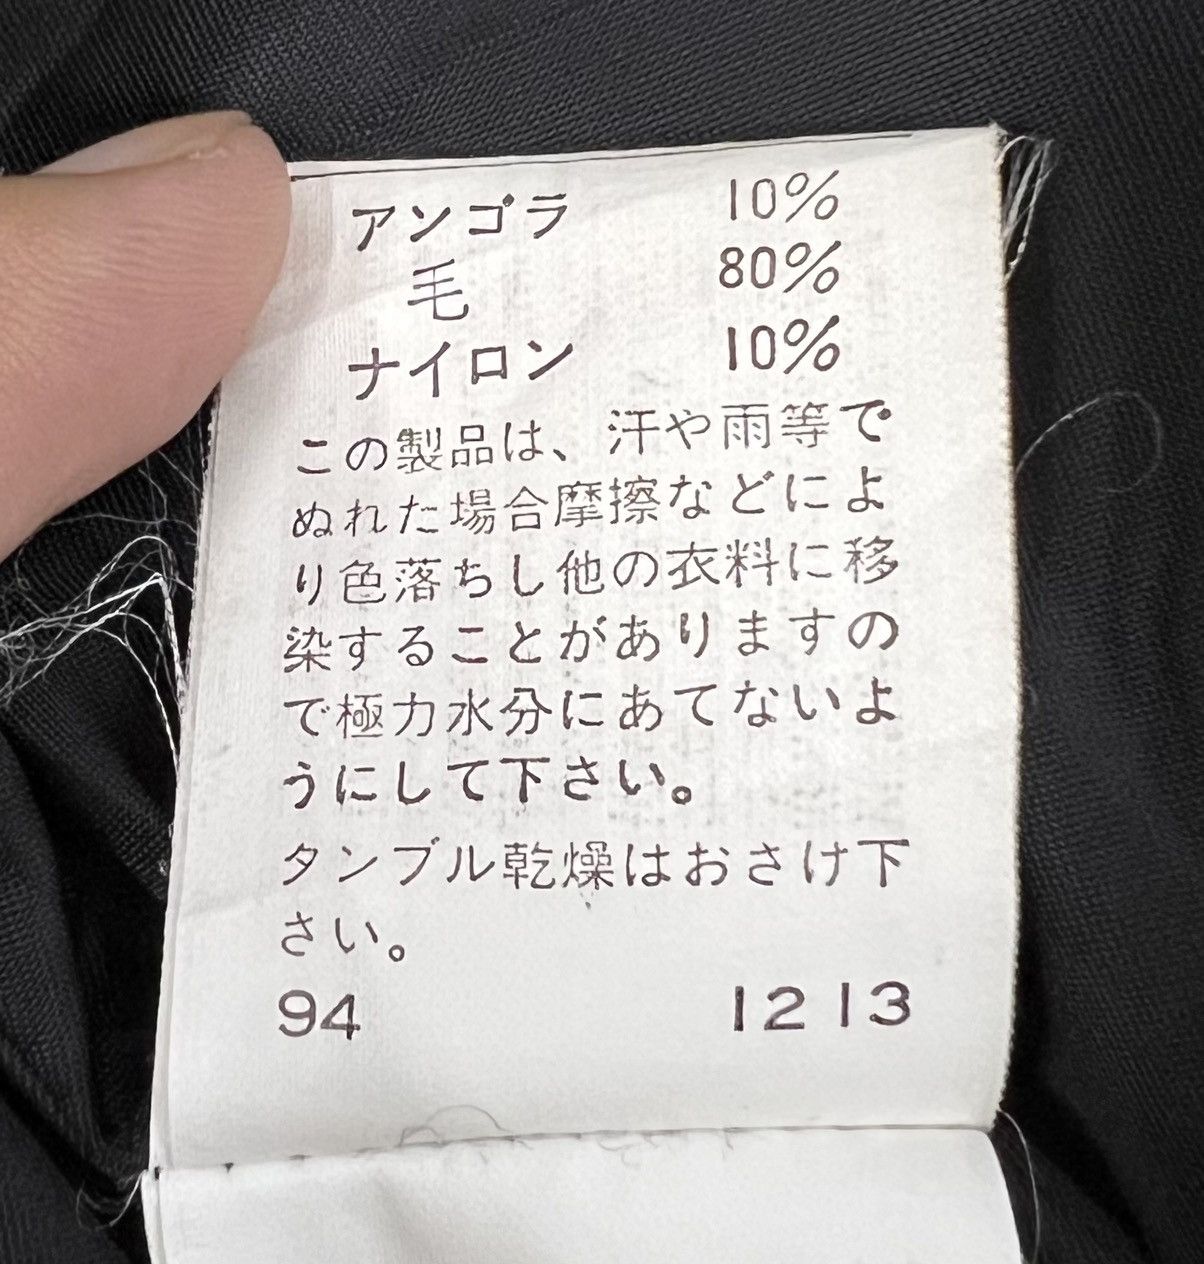 アンゴラ 10%
毛 80%
ナイロン 10%
この製品は、汗や雨等で
ぬれた場合摩擦などによ
り色落ちし他の衣料に移
染することがありますの
で極力水分にあてないよ
うにして下さい。
タンブル乾燥はおさけ下
さい。
94 1213